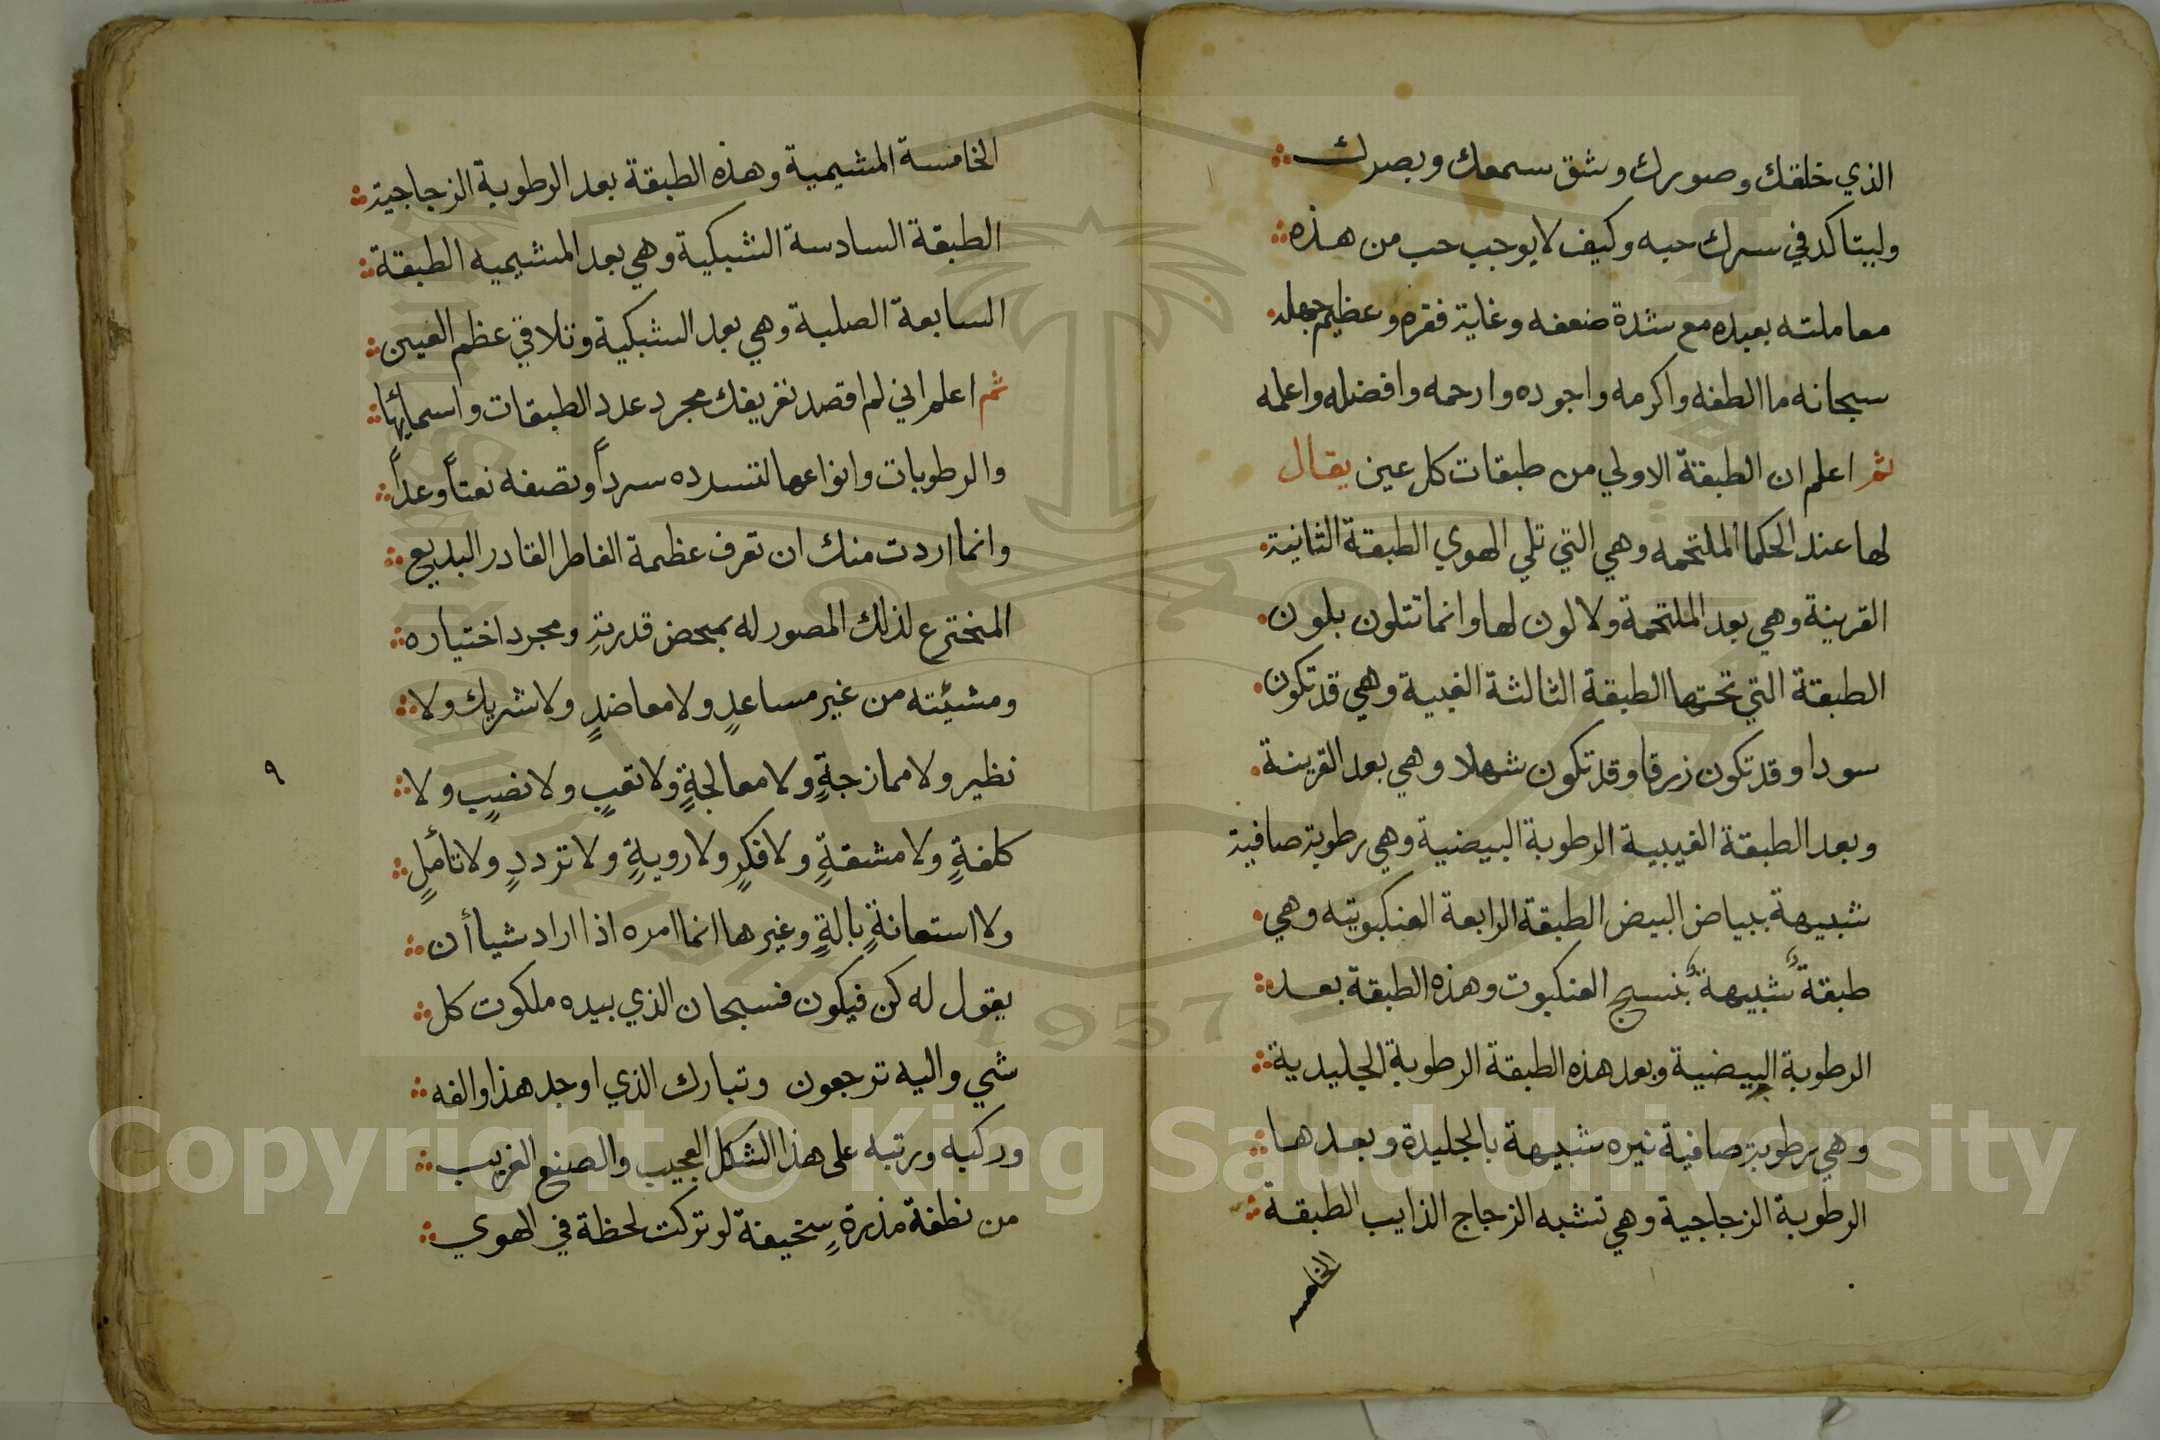 الذي خلقك وصورك وشق سمعك وبصرك
وليتاكد في سرك حبه وكيف لا يوجب حب من هذه
معاملته بعبده مع شدة ضعفه وغاية فقره وعظيم جهله
سبحانه ما الطفه واكرمه واجوده وارحمه وافضله واعلمه
ثم اعلم ان الطبقة الاولي من طبقات كل عين يقال
لها عند الحكما الملتحمه وهي التي تلي الهوي الطبقة الثانية
القرينة وهي بعد الملتحمة ولا لون لها وانما تتلون بلون
الطبقة التي تحتها الطبقة الثالثة العيبية وهي قد تكون
سودا وقد تكون زرقا وقد تكون شهلا وهي بعد القرينة
وبعد الطبقة العيبية الرطوبة البيضية وهي رطوبة صافية
شبيهة ببياض البيض الطبقة الرابعة العنكبوتيه وهي
طبقة شبيهة بنسج العنكبوت وهذه الطبقة بعد
الرطوبة البيضية وبعد هذه الطبقة الرطوبة الجليدية
وهي رطوبة صافية نيره شبيهة بالجليدة وبعدها
الرطوبة الزجاجية وهي تشبه الزجاج الذايب الطبقة
الخامسه
الخامسة المشيمية وهذه الطبقة بعد الرطوبة الزجاجية
الطبقة السادسة الشبكية وهي بعد المشيميه الطبقة
السابعة الصلبة وهي بعد الشبكية وتلاقي عظم العين
ثم اعلم اني لم اقصد تعريفك مجرد عدد الطبقات واسمايها
والرطوبات وانواعها لتسرده سرداً وتصفه نعتاً وعداً
وانما اردت منك ان تعرف عظمة الفاطر القادر البديع
المخترع لذلك المصور له بمحض قدرته ومجرد اختياره
ومشيئته من غير مساعدٍ ولا معاضدٍ ولا شريك ولا
نظير ولا ممازجةٍ ولا معالجةٍ ولا تعبٍ ولا نصبٍ ولا
كلفةٍ ولا مشقةٍ ولا فكرٍ ولا رويةٍ ولا ترددٍ ولا تأملٍ
ولا استعانةٍ بالةٍ وغيرها انما امره اذا اراد شيا أن
يقول له كن فيكون فسبحان الذي بيده ملكوت كل
شي واليه ترجعون وتبارك الذي اوجد هذا والفه
وركبه ورتبه على هذا الشكل العجيب والصنع الغريب
من نطفة مذرةٍ سخيفة لو تركت لحظة في الهوي
٩
1957
Copyright © King Saud University